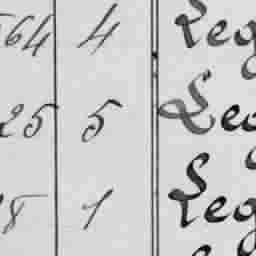 564 4 Leg
25 5 Leg
18 1 Leg